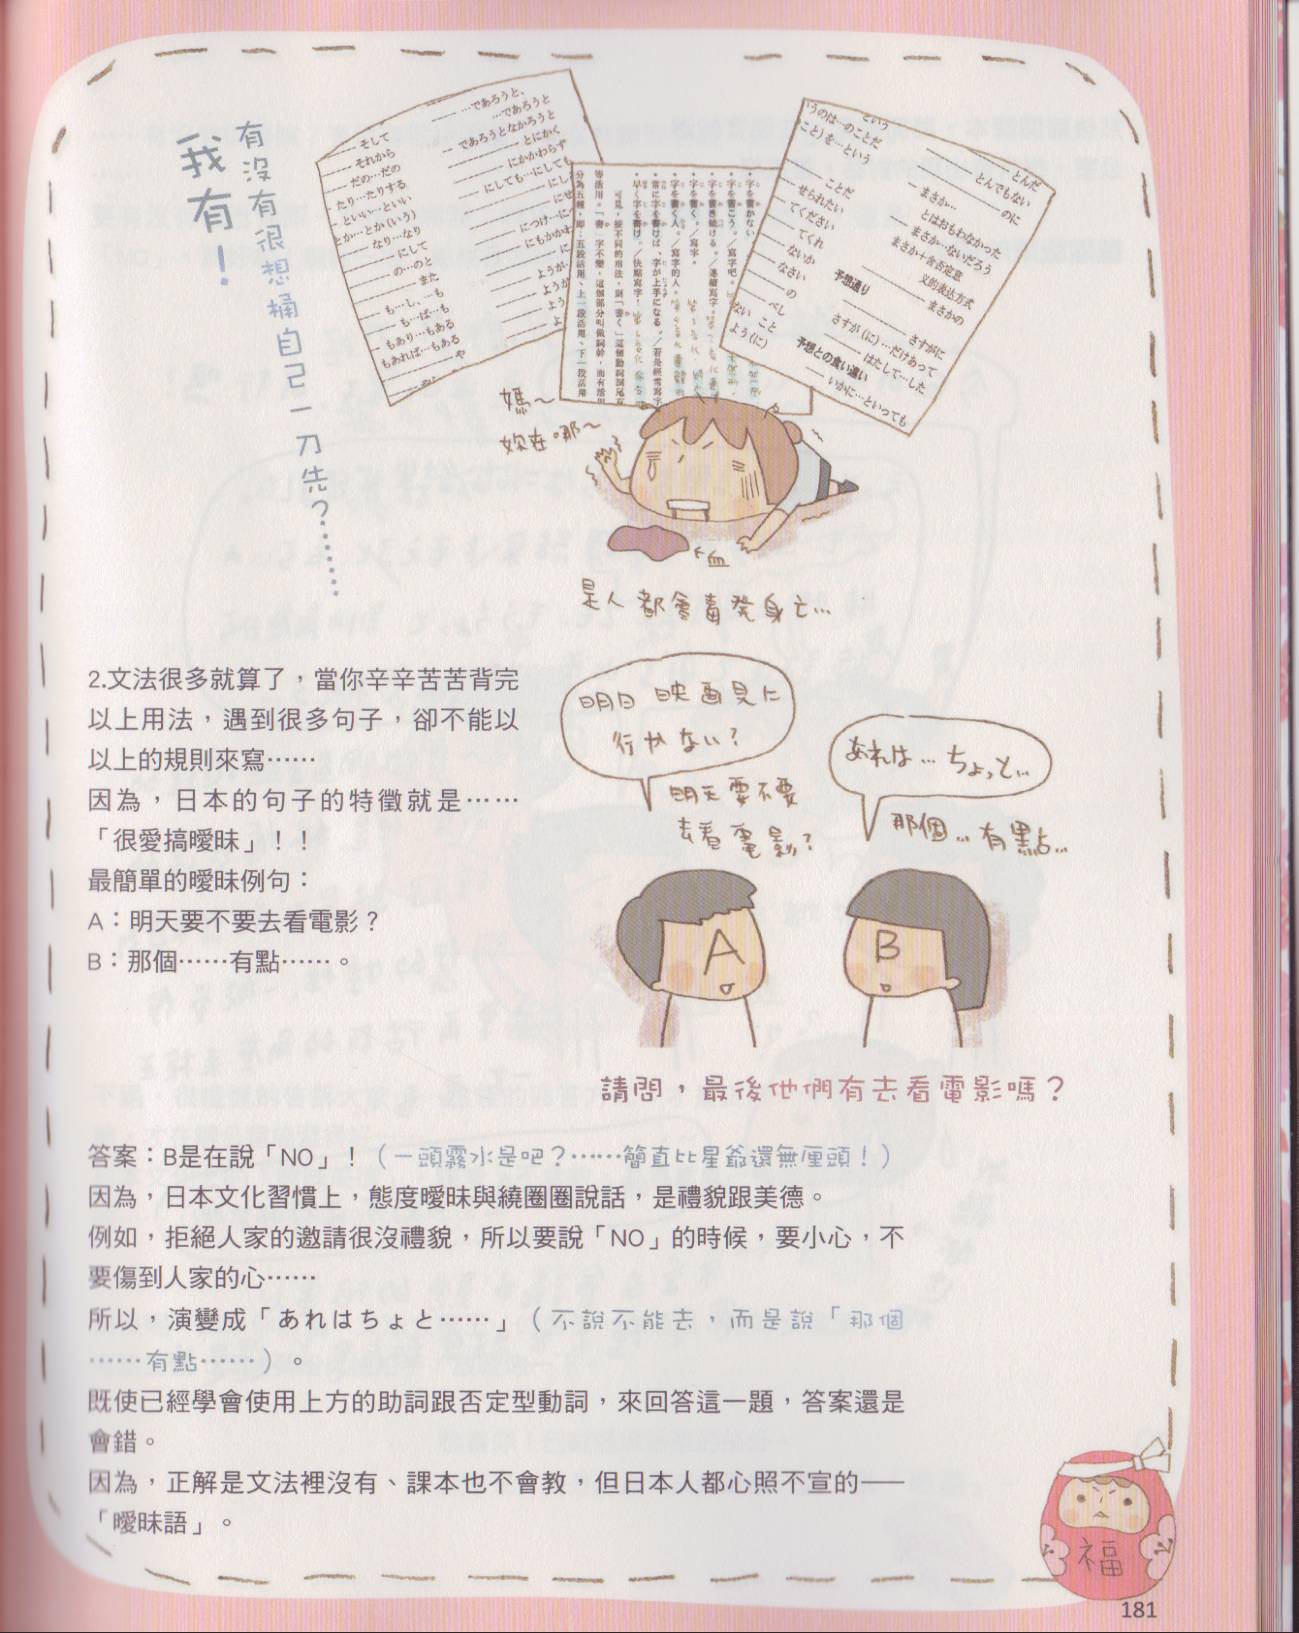 有沒有很想桶自己一刀先？……
我有！
…であろうと、
…であろうと
であろうとなかろうと
とにかく
にかかわらず
にしても…にしても
そして
それから
だの…だの
たり…たりする
といい…といい
とか…とか(いう)
なり…なり
にして
の…のと
また
も…し、…も
も…ば…も
もあり…もある
もあれば…もある
や
につけ…に
にもかかわ
ようが
ようが
よう
よ
・字を書かない
・字を書こう。／寫字吧。
・字を書き続ける。／連續寫字。
・字を書く。／寫字。
・字を書く人。／寫字的人。
・常に字を書けば、字が上手になる。／若是經常寫字
・早く字を書け。／快點寫字！
可見，按不同的用法，則「書く」這個動詞詞尾有
等活用。「書」字不變，這個部分叫做詞幹，而有活用
分為五種，即：五段活用、上一段活用、下一段活用
という
うのは…のことだ
こと)を…という
ことだ
せられたい
てください
てくれ
ないか
なさい
の
べし
ない こと
よう(に)
とんだ
とんでもない
のに
まさか…
とはおもわなかった
まさか…ないだろう
まさか＋含否定意
义的表达方式
まさかの
予想通り
さすがに
さすが(に)…だけあって
はたして…した
予想との食い違い
いかに…といっても
媽～
妳在哪～
血
是人都會毒発身亡…
2.文法很多就算了，當你辛辛苦苦背完
以上用法，遇到很多句子，卻不能以
以上的規則來寫……
因為，日本的句子的特徵就是……
「很愛搞曖昧」！！
最簡單的曖昧例句：
A：明天要不要去看電影？
B：那個……有點……。
明日 映画見に
行かない？
明天要不要
去看電影？
あれは… ちょっと…
那個… 有點…
A
B
請問，最後他們有去看電影嗎？
答案：B是在說「NO」！（一頭霧水是吧？……簡直比星爺還無厘頭！）
因為，日本文化習慣上，態度曖昧與繞圈圈說話，是禮貌跟美德。
例如，拒絕人家的邀請很沒禮貌，所以要說「NO」的時候，要小心，不
要傷到人家的心……
所以，演變成「あれはちょと……」（不說不能去，而是說「那個
……有點……）。
既使已經學會使用上方的助詞跟否定型動詞，來回答這一題，答案還是
會錯。
因為，正解是文法裡沒有、課本也不會教，但日本人都心照不宣的──
「曖昧語」。
福
181